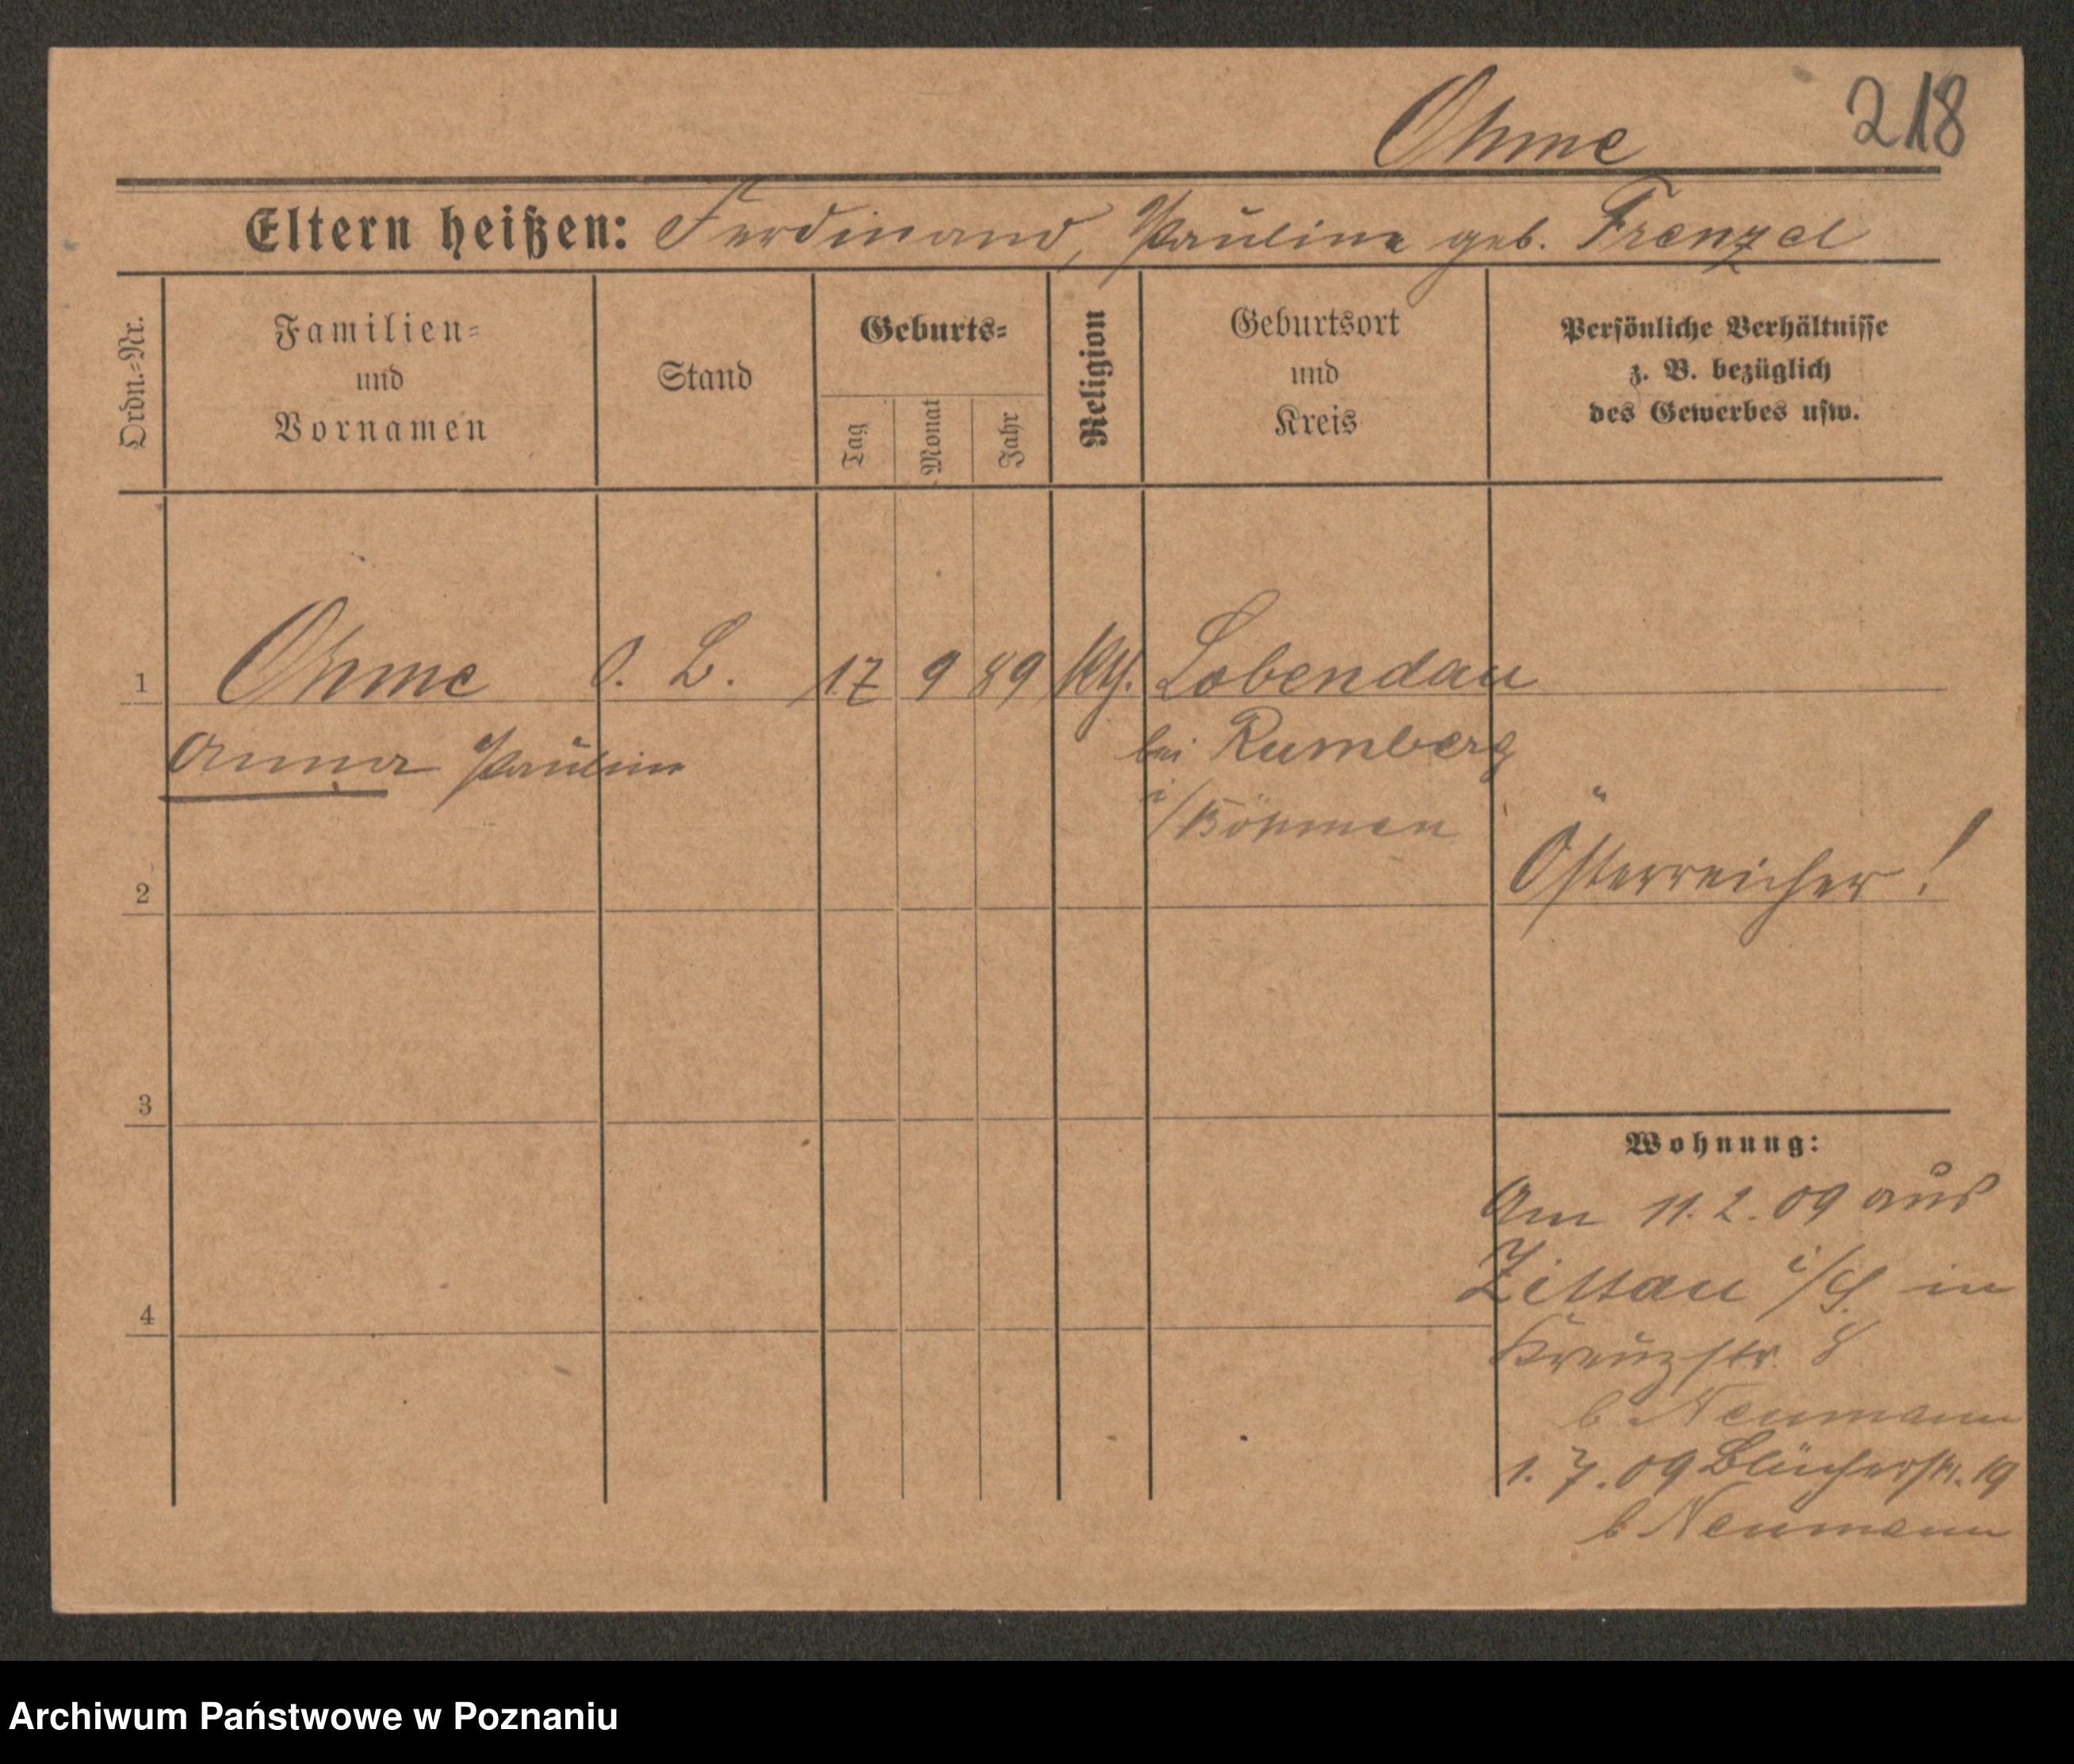 Ohme 218
Eltern heißen: Ferdinand, Pauline geb. Frenzel
Ordn.-Nr.
Familien-
und
Vornamen
Stand
Geburts-
Tag
Monat
Jahr
Religion
Geburtsort
und
Kreis
Persönliche Verhältnisse
z. B. bezüglich
des Gewerbes usw.
1 Ohme O. B. 17 9 89 kth. Lobendau
Anna Pauline bei Rumberg
i/Böhmen
2 Österreicher!
3
Wohnung:
Am 11. 2. 09 aus
Zittau i/S. in
4
Kreuzstr. 8
b. Neumann
1. 7. 09 Blücherstr. 19
b Neumann
Archiwum Państwowe w Poznaniu